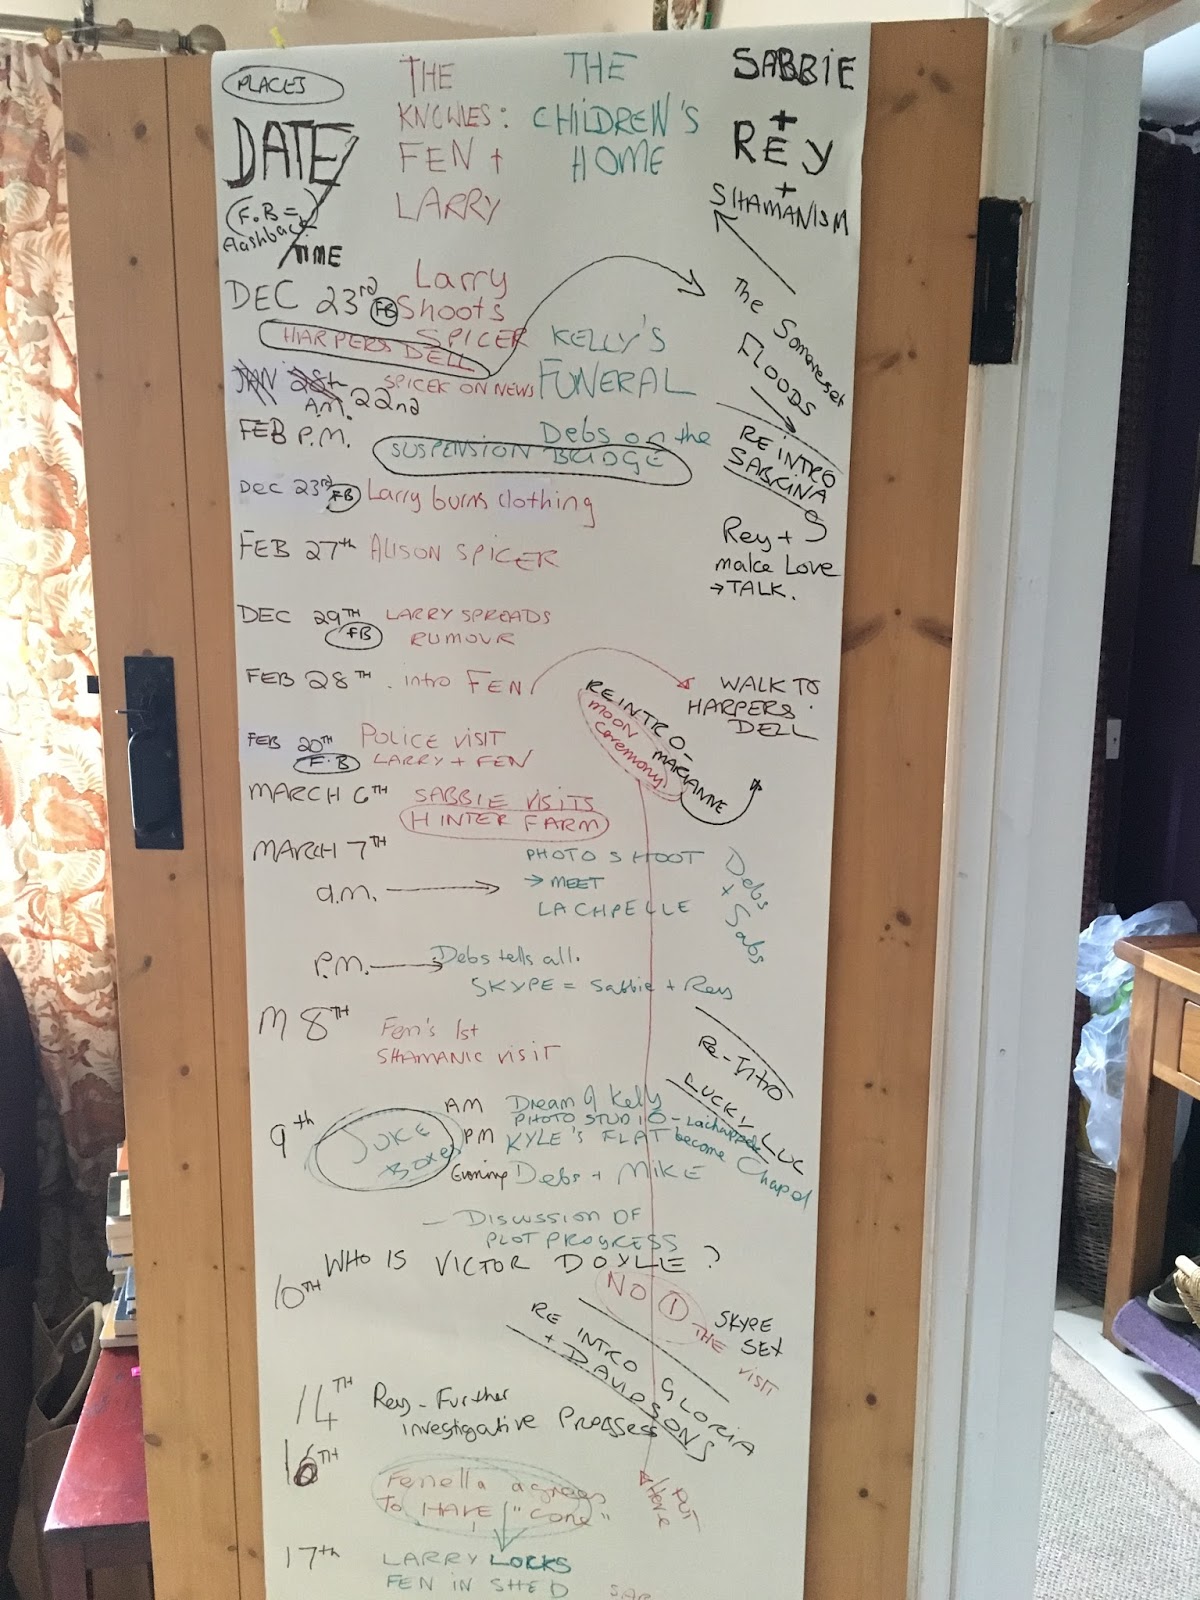 PLACES
DATE/
F.B =
flashback
TIME
THE
KNOWLES:
FEN +
LARRY
THE
CHILDREN'S
HOME
SABBIE
+
REY
+
SHAMANISM
DEC 23rd FB
Larry
Shoots
SPICER
HARPERS DELL
KELLY'S
FUNERAL
The Somerset
FLOODS
JAN 28th
A.M. 22nd
SPICER ON NEWS
FEB P.M.
Debs on the
SUSPENSION BRIDGE
RE INTRO
SABRINA
DEC 23rd FB Larry burns clothing
Rey +
make Love
→ TALK.
FEB 27th ALISON SPICER
DEC 29TH LARRY SPREADS
FB RUMOUR
FEB 28TH . intro FEN
WALK TO
HARPERS
DELL
RE INTRO-
MARIANNE
MOON
Ceremony
FEB 20TH POLICE VISIT
F.B LARRY + FEN
MARCH 6TH SABBIE VISITS
HINTER FARM
MARCH 7TH
a.m. → PHOTO SHOOT
→ MEET
LACHPELLE
Debs
+ Sabs
P.M. → Debs tells all.
SKYPE = Sabbie + Rey
M 8TH Fen's 1st
SHAMANIC VISIT
Re-Intro
LUCKY LUC
9th JUKE
Boxes
AM Dream of Kelly
PHOTO STUDIO - Lachappelle
PM KYLE'S FLAT become Chapel
Evening Debs + MIKE
— DISCUSSION OF
PLOT PROGRESS
WHO IS VICTOR DOYLE ?
10TH
NO 1
THE
VISIT
SKYPE
SET
RE INTRO GLORIA
+ DAVIDSONS
14TH Rey - Further
investigative Progress
16TH
Fenella agrees
To HAVE "Cone"
PUT
Here
17th LARRY LOCKS
FEN IN SHED